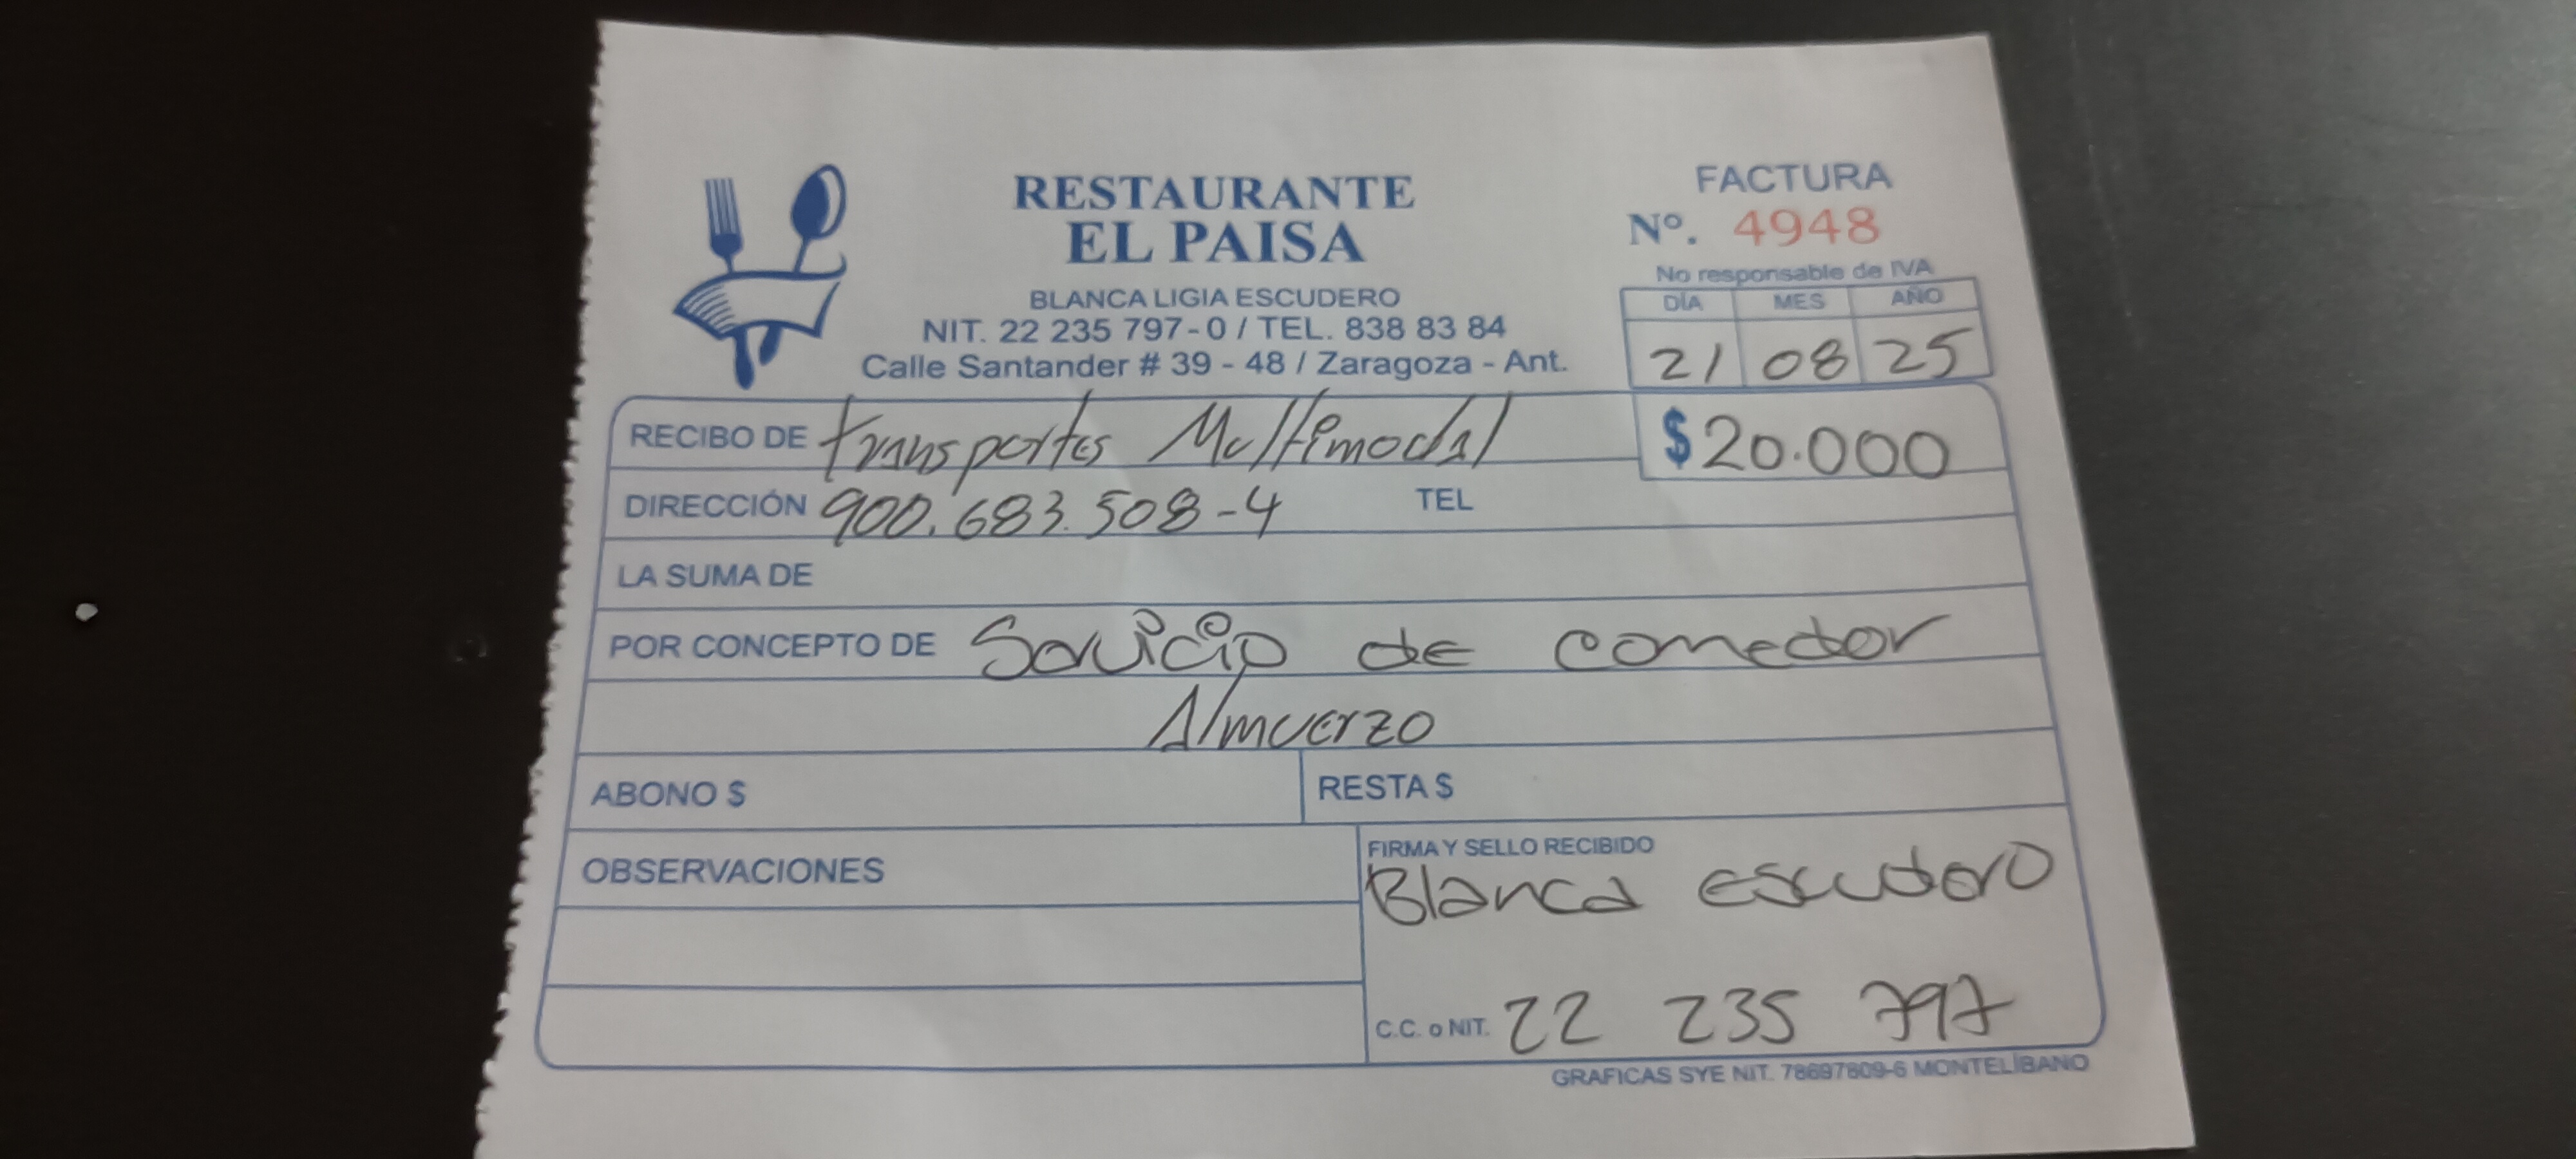 RESTAURANTE
EL PAISA
BLANCA LIGIA ESCUDERO
NIT. 22 235 797-0 / TEL. 838 83 84
Calle Santander # 39 - 48 / Zaragoza - Ant.
FACTURA
Nº. 4948
No responsable de IVA
DÍA MES AÑO
21 08 25
RECIBO DE transportes Multimodal $20.000
DIRECCIÓN 900.683.508-4 TEL
LA SUMA DE
POR CONCEPTO DE Servicio de comedor
Almuerzo
ABONO $ RESTA $
OBSERVACIONES
FIRMA Y SELLO RECIBIDO
Blanca escudero
C.C. o NIT. 22 235 797
GRAFICAS SYE NIT. 78697809-6 MONTELÍBANO